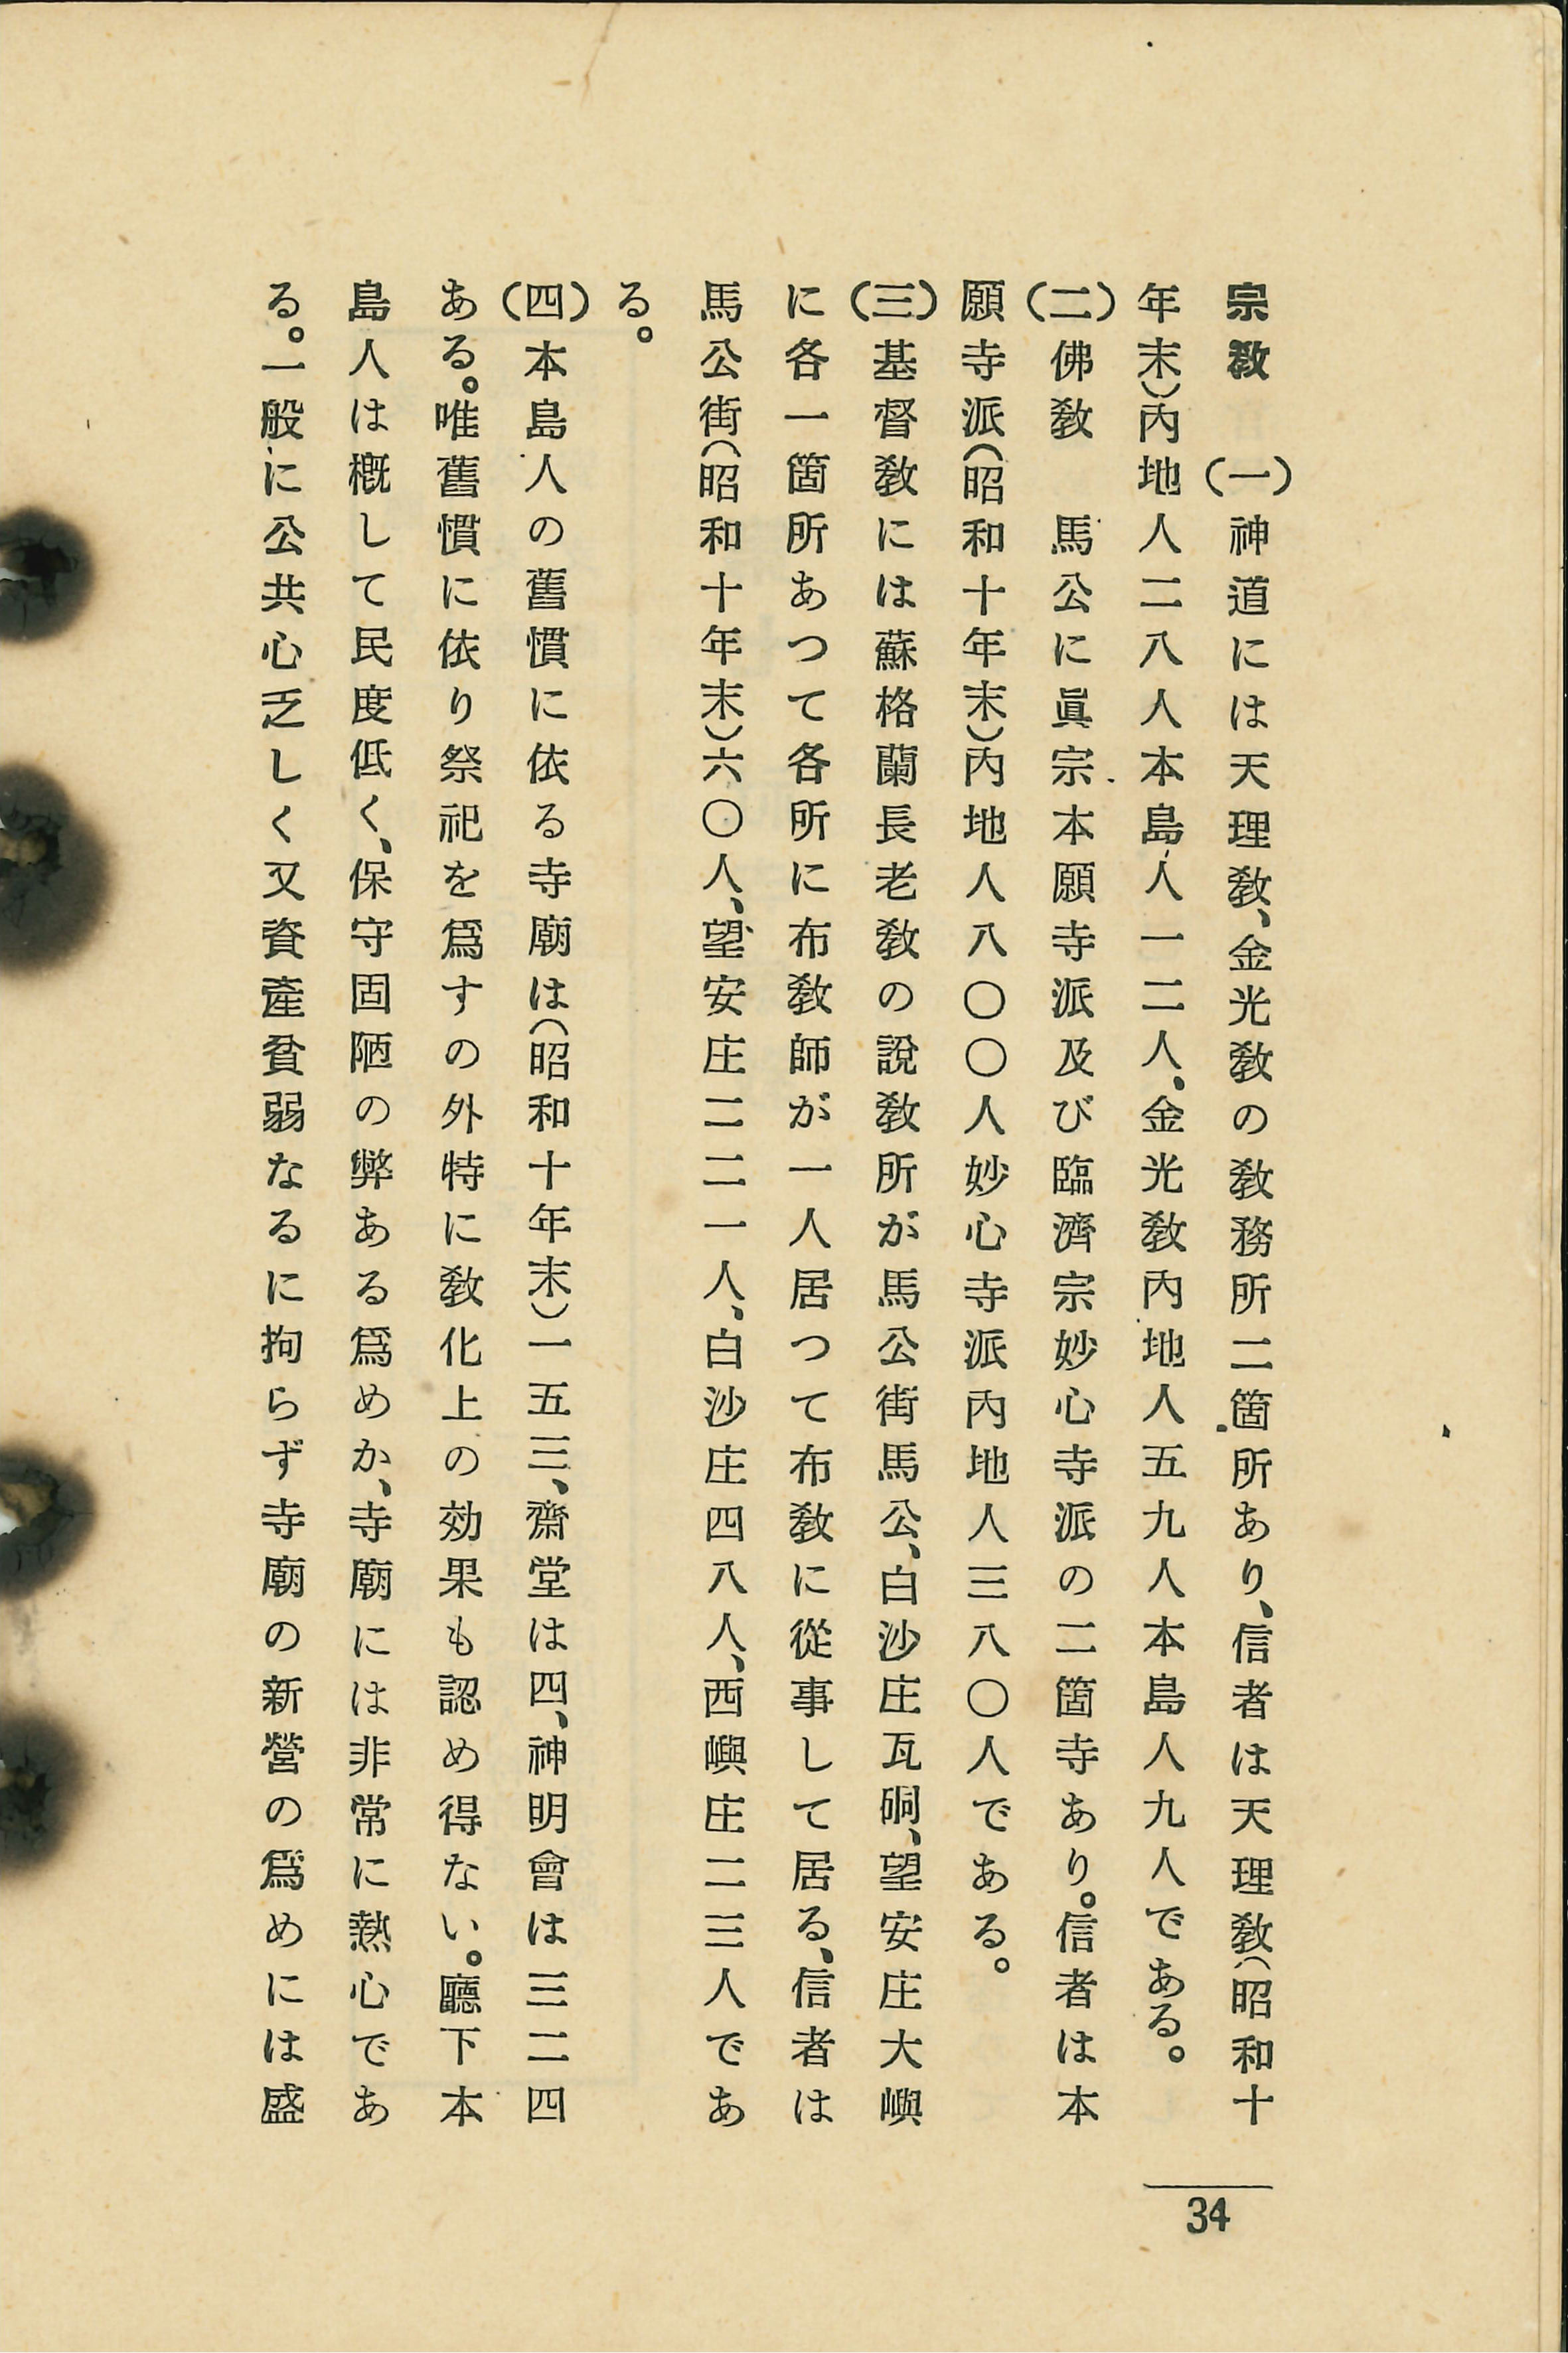 宗敎　(一)神道には天理敎、金光敎の敎務所二箇所あり、信者は天理敎(昭和十
年末)內地人二八人本島人一二人、金光敎內地人五九人本島人九人である。
(二)佛敎　馬公に眞宗本願寺派及び臨濟宗妙心寺派の二箇寺あり。信者は本
願寺派(昭和十年末)內地人八〇〇人妙心寺派內地人三八〇人である。
(三)基督敎には蘇格蘭長老敎の說敎所が馬公街馬公、白沙庄瓦硐、望安庄大嶼
に各一箇所あつて各所に布敎師が一人居つて布敎に從事して居る、信者は
馬公街(昭和十年末)六〇人、望安庄二二一人、白沙庄四八人、西嶼庄二三人であ
る。
(四)本島人の舊慣に依る寺廟は(昭和十年末)一五三、齋堂は四、神明會は三二四
ある。唯舊慣に依り祭祀を爲すの外特に敎化上の効果も認め得ない。廳下本
島人は槪して民度低く、保守固陋の弊ある爲めか、寺廟には非常に熱心であ
る。一般に公共心乏しく又資產貧弱なるに拘らず寺廟の新營の爲めには盛
34